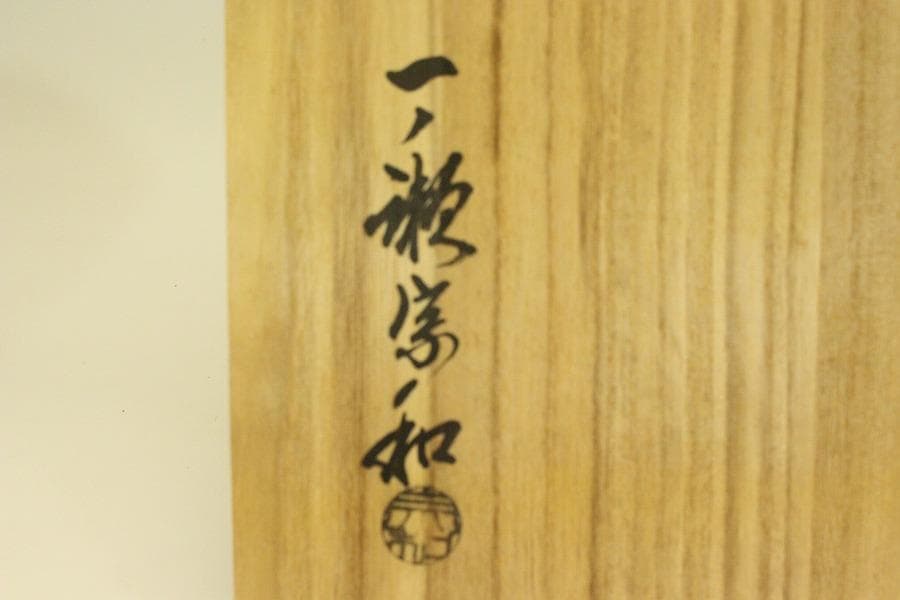 一ノ瀬宗和